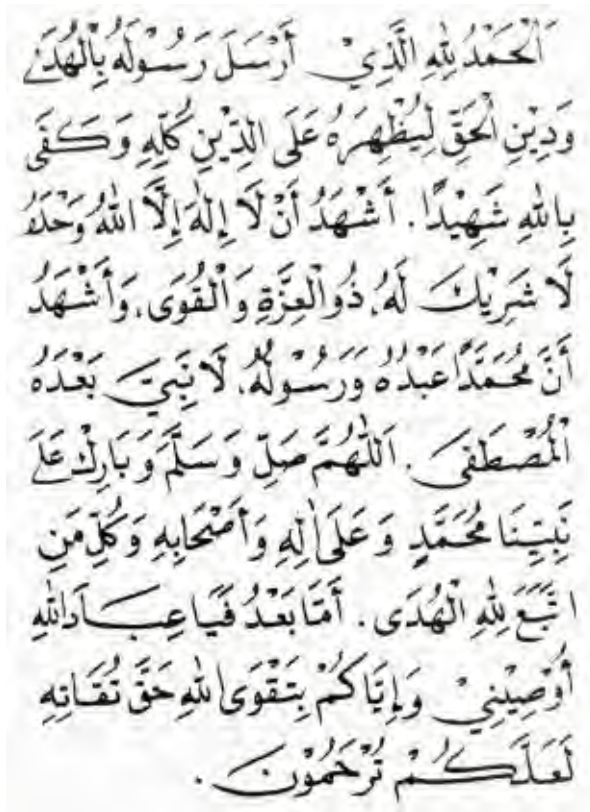 اَلْحَمْدُ لِلّٰهِ الَّذِيْ أَرْسَلَ رَسُوْلَهُ بِالْهُدَى
وَدِيْنِ الْحَقِّ لِيُظْهِرَهُ عَلَى الدِّيْنِ كُلِّهِ وَكَفَى
بِاللّٰهِ شَهِيْدًا. أَشْهَدُ أَنْ لَا إِلٰهَ إِلَّا اللّٰهُ وَحْدَهُ
لَا شَرِيْكَ لَهُ، ذُو الْعِزَّةِ وَالْقُوَى، وَأَشْهَدُ
أَنَّ مُحَمَّدًا عَبْدُهُ وَرَسُوْلُهُ، لَا نَبِيَّ بَعْدَهُ
الْمُصْطَفَى. اَللّٰهُمَّ صَلِّ وَسَلِّمْ وَبَارِكْ عَلَى
نَبِيِّنَا مُحَمَّدٍ وَعَلَى اٰلِهِ وَأَصْحَابِهِ وَكُلِّ مَنِ
اتَّبَعَ لِلّٰهِ الْهُدَى. أَمَّا بَعْدُ فَيَا عِبَادَ اللّٰهِ
أُوْصِيْنِيْ وَإِيَّاكُمْ بِتَقْوَى اللّٰهِ حَقَّ تُقَاتِهِ
لَعَلَّكُمْ تُرْحَمُوْنَ.